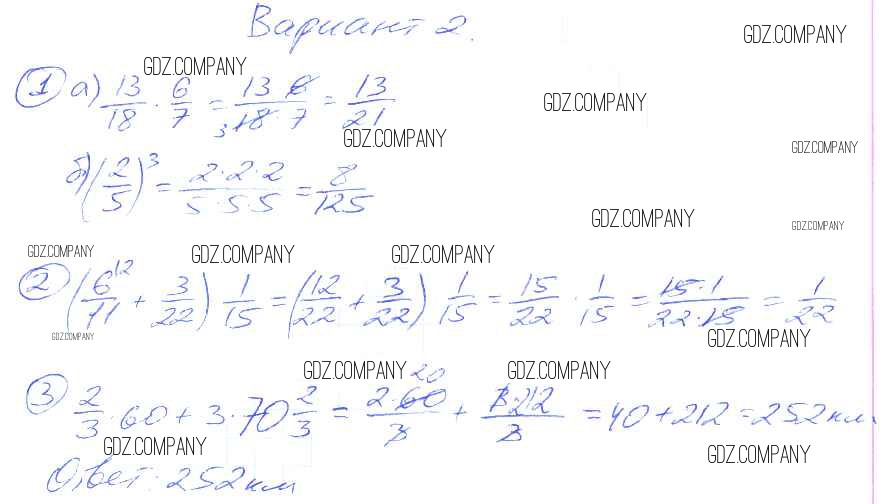 Вариант 2.
GDZ.COMPANY
GDZ.COMPANY
1 а) 13/18 · 6/7 = 13 6/18 7 = 13/21
3
GDZ.COMPANY
GDZ.COMPANY
GDZ.COMPANY
б) (2/5)^3 = 2·2·2/5·5·5 = 8/125
GDZ.COMPANY
GDZ.COMPANY
GDZ.COMPANY GDZ.COMPANY GDZ.COMPANY
2 (6^12/11 + 3/22) 1/15 = (12/22 + 3/22) 1/15 = 15/22 · 1/15 = 15·1/22·15 = 1/22
GDZ.COMPANY
GDZ.COMPANY
GDZ.COMPANY GDZ.COMPANY
20
3 2/3 · 60 + 3 · 70 2/3 = 2·60/3 + 3·212/3 = 40 + 212 = 252 км
GDZ.COMPANY
GDZ.COMPANY
Ответ: 252 км